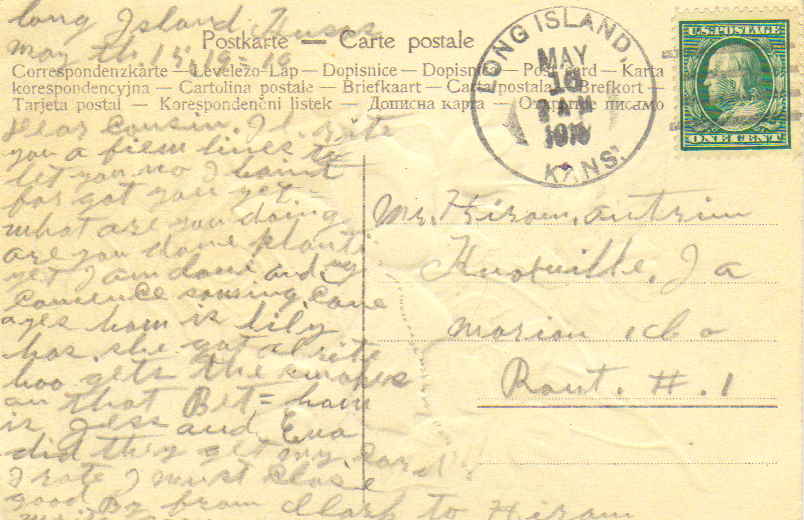 Long Island Kuses
may th. 15, 19=10
Postkarte — Carte postale
Correspondenzkarte — Levelező-Lap — Dopisnice — Dopisnic — Post card — Karta
korespondencyjna — Cartolina postale — Briefkaart — Carta postala — Brefkort —
Tarjeta postal — Korespondenční listek — Дописна карта — Открытое письмо
LONG ISLAND,
MAY
16
8 AM
1910
KANS.
U.S. POSTAGE
ONE CENT
Dear Cousin. I rite
you a fiew lines to
let you no I haint
for got you yet.
what are you doing
are you done planti
yet I am done and
comence cane
ages how is lily
has she got a rite
hoo gets the
an that Bet = how
is Jess and Eva
did they get my Card
I rote I must close
good By from Clark to Hiram
Mr. Hiram, antrim
Knoxville, Ja
marion, Co
Rout. #.1